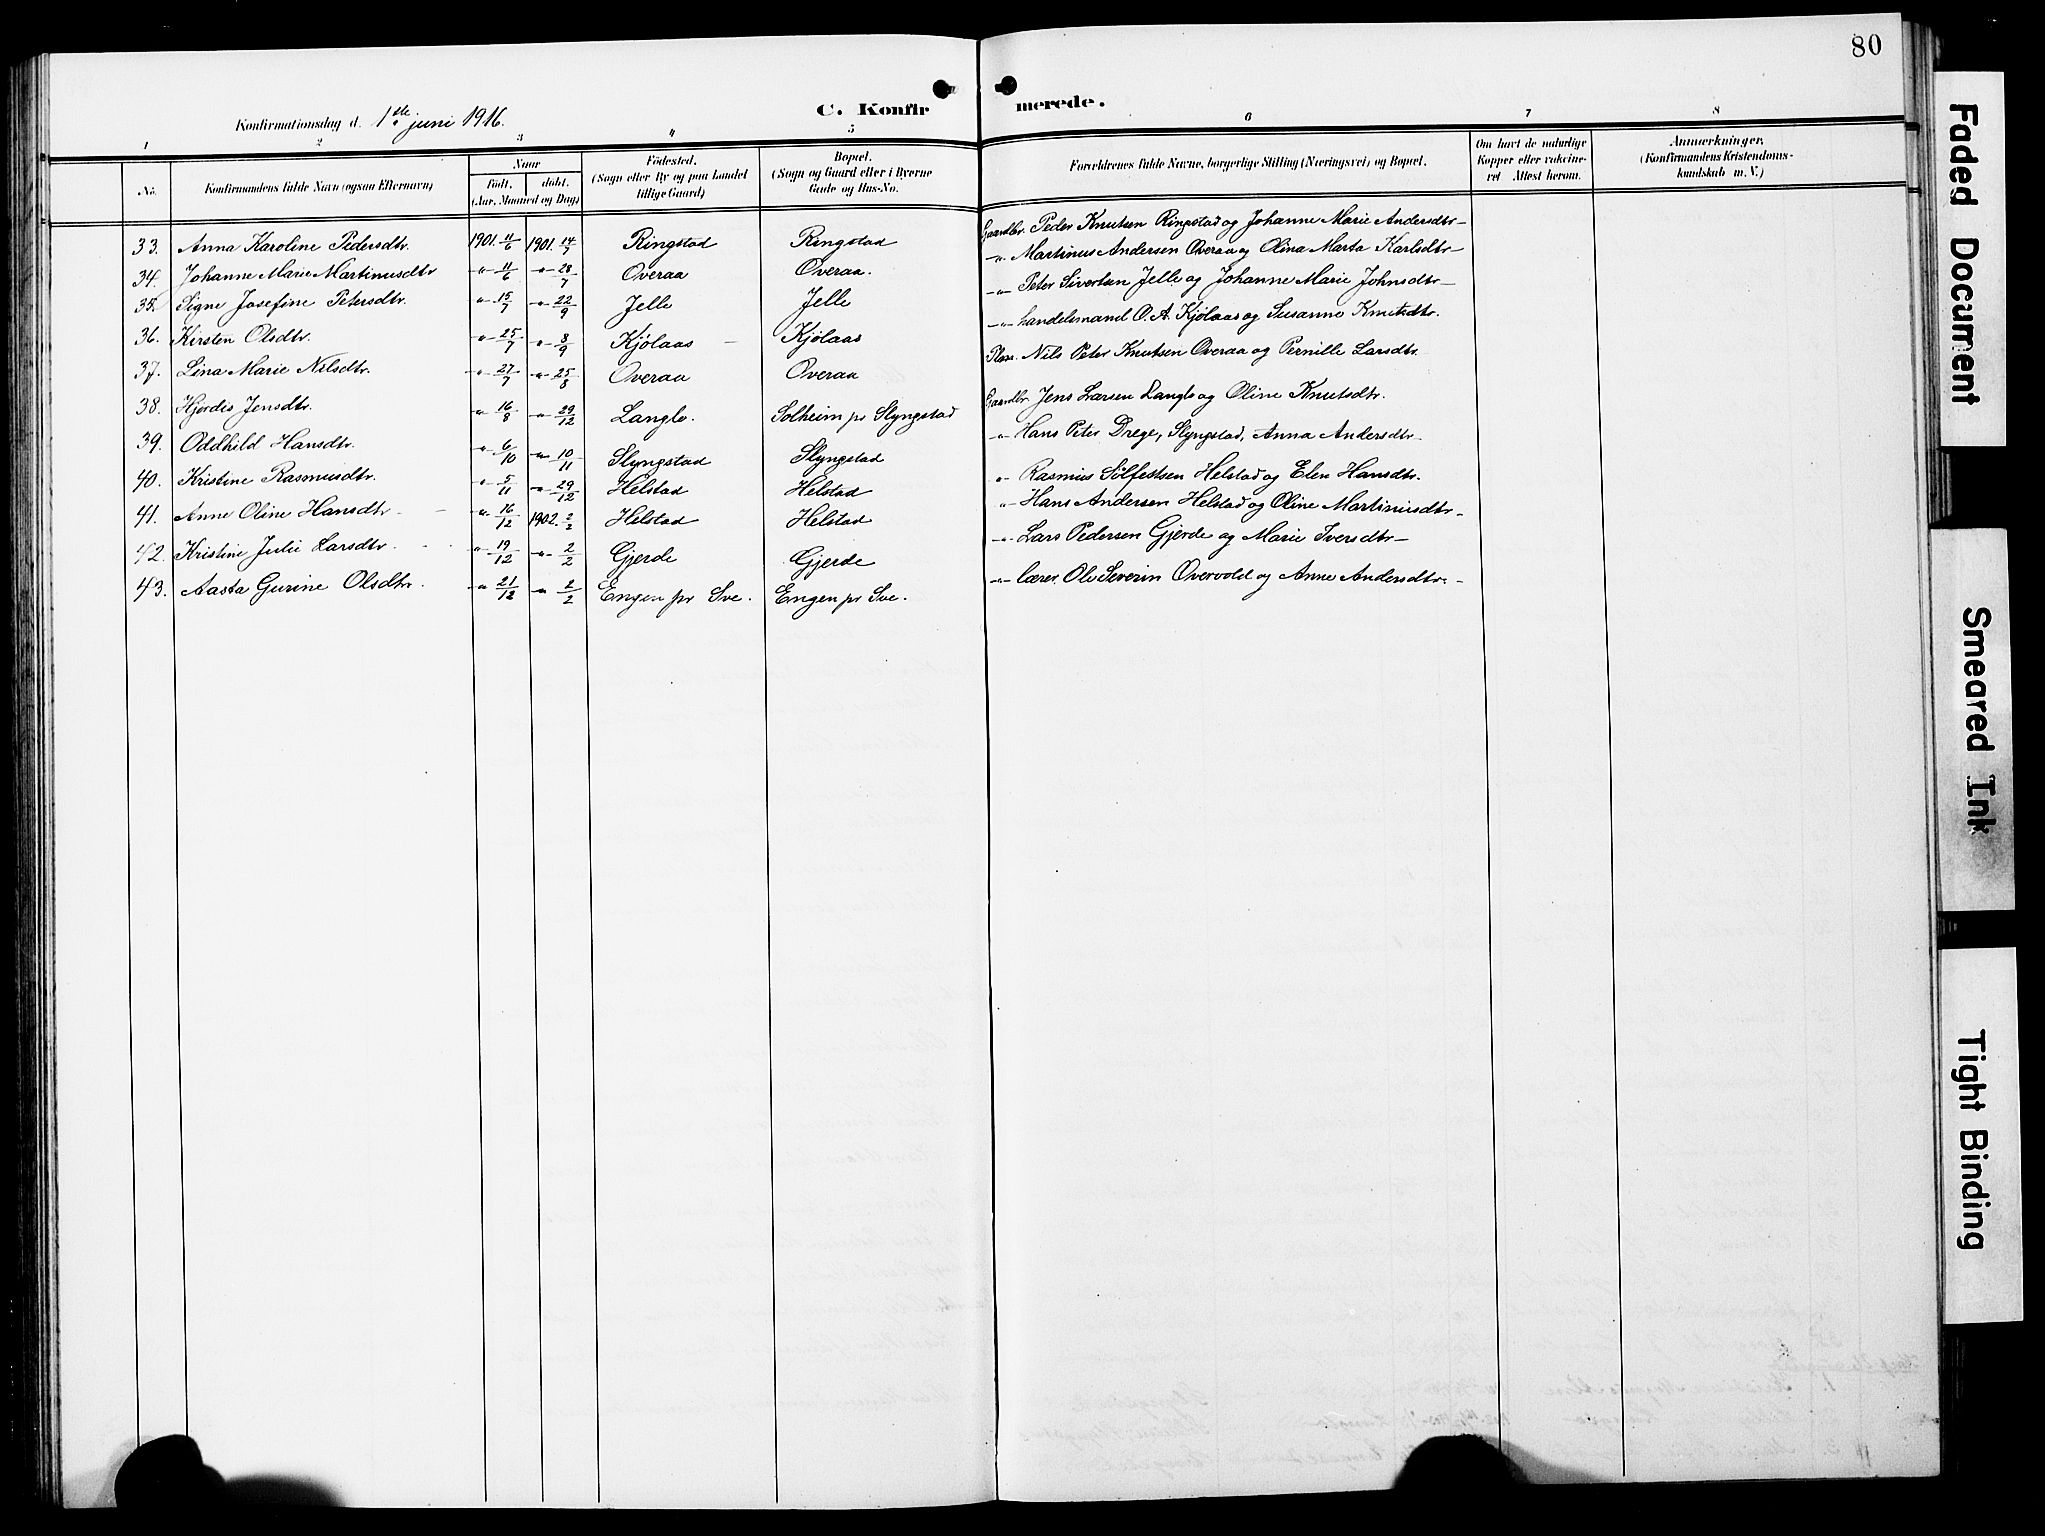 80
Konfirmationsdag d. 1ste juni 1916.
C. Konfirmerede.
1 2 3 4 5 6 7 8
No. Konfirmandens fulde Navn (ogsaa Efternavn) Naar født, døbt. (Aar, Maaned og Dag) Fødested. (Sogn eller By og paa Landet tillige Gaard) Bopæl. (Sogn og Gaard eller i Byerne Gade og Hus-No. Forældrenes fulde Navne, borgerlige Stilling (Næringsvei) og Bopæl. Om havt de naturlige Kopper eller vakcineret Attest herom. Anmærkninger, (Konfirmandens Kristendomskundskab m. V.)
33. Anna Karoline Pedersdtr. 1901. 11/6 1901. 14/7 Ringstad Ringstad Gaardbr. Peder Knutsen Ringstad og Johanne Marie Andersdtr
34. Johanne Marie Martinusdtr -"- 11/6 -"- 28/7 Overaa Overaa. -"- Martinus Andersen Overaa og Olina Marta Karlsdtr
35. Signe Josefine Petersdtr. -"- 15/7 -"- 22/9 Jelle Jelle -"- Peter Sivertsen Jelle og Johanne Marie Johnsdtr
36. Kirsten Olsdtr. -"- 25/7 -"- 8/9 Kjølaas Kjølaas -"- handelsmand O. A. Kjølaas og Susanne Knutsdtr.
37. Lina Marie Nilsdtr. -"- 27/7 -"- 25/8 Overaa Overaa Plass. Nils Peter Knutsen Overaa og Pernille Larsdtr.
38. Hjørdis Jensdtr. -"- 16/8 -"- 29/12 Langlo. Solheim pr Slyngstad Gaardbr. Jens Larsen Langlo og Oline Knutsdtr.
39. Oddhild Hansdtr. -"- 6/10 -"- 10/11 Slyngstad Slyngstad -"- Hans Peter Drege, Slyngstad, Anna Andersdtr
40. Kristine Rasmusdtr. -"- 5/11 -"- 29/12 Helstad Helstad -"- Rasmus Sølfestsen Helstad og Elen Hansdtr.
41. Anne Oline Hansdtr -"- 16/12 1902. 2/2 Helstad Helstad -"- Hans Andersen Helstad og Oline Martinusdtr
42. Kristine Julie Larsdtr. -"- 19/12 -"- 2/2 Gjerde Gjerde -"- Lars Pedersen Gjerde og Marie Iversdtr
43. Aasta Gurine Olsdtr. -"- 21/12 -"- 2/2 Engen pr Sve. Engen pr Sve. -"- lærer. Ole Severin Overvold og Anne Andersdtr.
Faded Document
Smeared Ink
Tight Binding